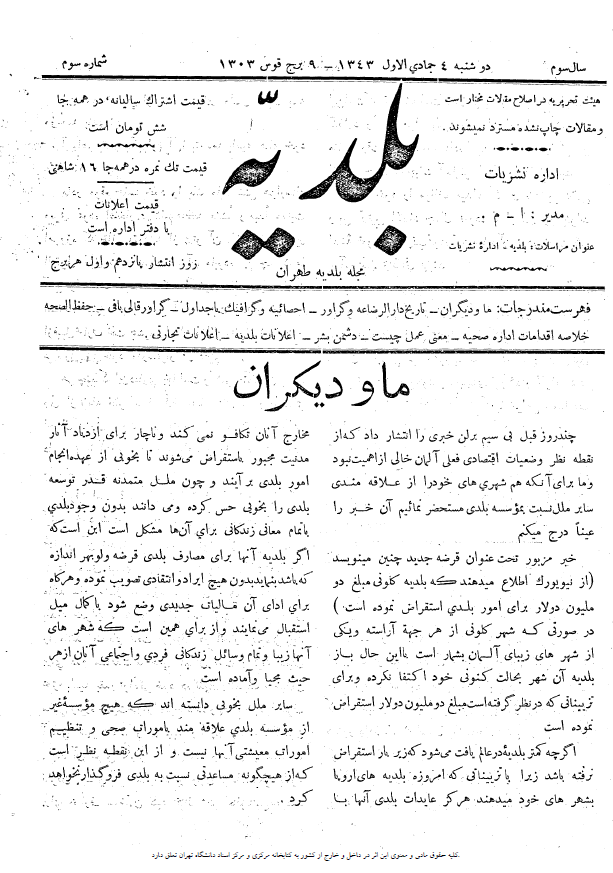 سال سوم
دوشنبه ٤ جمادي الاول ۱۳٤۳ - ۹ برج قوس ۱۳۰۳
شماره سوم
هیئت تحریریه در اصلاح مقالات مختار است
و مقالات چاپ نشده مسترد نمیشوند .
اداره نشریات
مدیر : ا - م .
عنوان مراسلات: بلدیه - ادارهٔ نشریات
بلدیّه
مجله بلدیه طهران
قیمت اشتراك سالیانه در همه جا
شش تومان است
قیمت تك نمره در همه جا ۱٦ شاهی
قیمت اعلانات
با دفتر اداره است
روز انتشار پانزدهم و اول هر برج
فهرست مندرجات: ما و دیگران - تاریخ دار الرضاعه و گراور - احصائیه و گرافیك با جداول - گراور قالی بافی - حفظ الصحه
خلاصه اقدامات اداره صحیه - معنی عمل چیست - دشمن بشر - اعلانات بلدیه - اعلانات تجارتی .
ما و دیکران
چندروز قبل بی سیم برلن خبری را انتشار داد که از
نقطه نظر وضعیات اقتصادی فعلی آلمان خالی از اهمیت نبود
و ما برای آنکه هم شهری های خود را از علاقه مندی
سایر ملل نسبت بمؤسسه بلدی مستحضر نمائیم آن خبر را
عیناً درج میکنم
خبر مزبور تحت عنوان قرضه جدید چنین مینویسد
(از نیویورك اطلاع میدهند که بلدیه کلونی مبلغ دو
ملیون دولار برای امور بلدي استقراض نموده است )
در صورتی که شهر کلونی از هر جهة آراسته و یکی
از شهر های زیبای آلمان بشمار است با این حال باز
بلدیه آن شهر بحالت کنونی خود اکتفا نکرده و برای
تزییناتی که در نظر گرفته است مبلغ دو ملیون دولار استقراض
نموده است
اگرچه کمتر بلدیهٔ در عالم یافت می شود که زیر بار استقراض
نرفته باشد زیرا با تزییناتی که امروزه بلدیه های اروپا
بشهر های خود میدهند هرکز عایدات بلدی آنها با
مخارج آنان تکافو نمی کند و ناچار برای ازدیاد آثار
مدنیت مجبور باستقراض می‌شوند تا بخوبی از عهده انجام
امور بلدی بر آیند و چون ملل متمدنه قدر توسعه
بلدی را بخوبی حس کرده و می دانند بدون وجود بلدي
با تمام معانی زندکانی برای آن‌ها مشکل است این است که
اگر بلدیه آنها برای مصارف بلدی قرضه ولو بهر اندازه
که باشد بنماید بدون هیچ ایراد و انتقادی تصویب نموده و هر کاه
برای ادای آن مالیات جدیدی وضع شود با کمال میل
استقبال می‌نمایند و از برای همین است که شهر های
آنها زیبا و تمام وسائل زندکانی فردي و اجتماعی آنان از هر
حیث مهیا و آماده است
سایر ملل بخوبی دانسته اند که هیچ مؤسسهٔ غیر
از مؤسسه بلدی علاقه مند باموراب صحی و تنظیم
اموراب معیشتی آنها نیست و از این نقطه نظر است
که از هیچگونه مساعدتی نسبت به بلدی فروگذار نخواهد
کرد .
.کلیه حقوق مادی و معنوی این اثر در داخل و خارج از کشور به کتابخانه مرکزی و مرکز اسناد دانشگاه تهران تعلق دارد